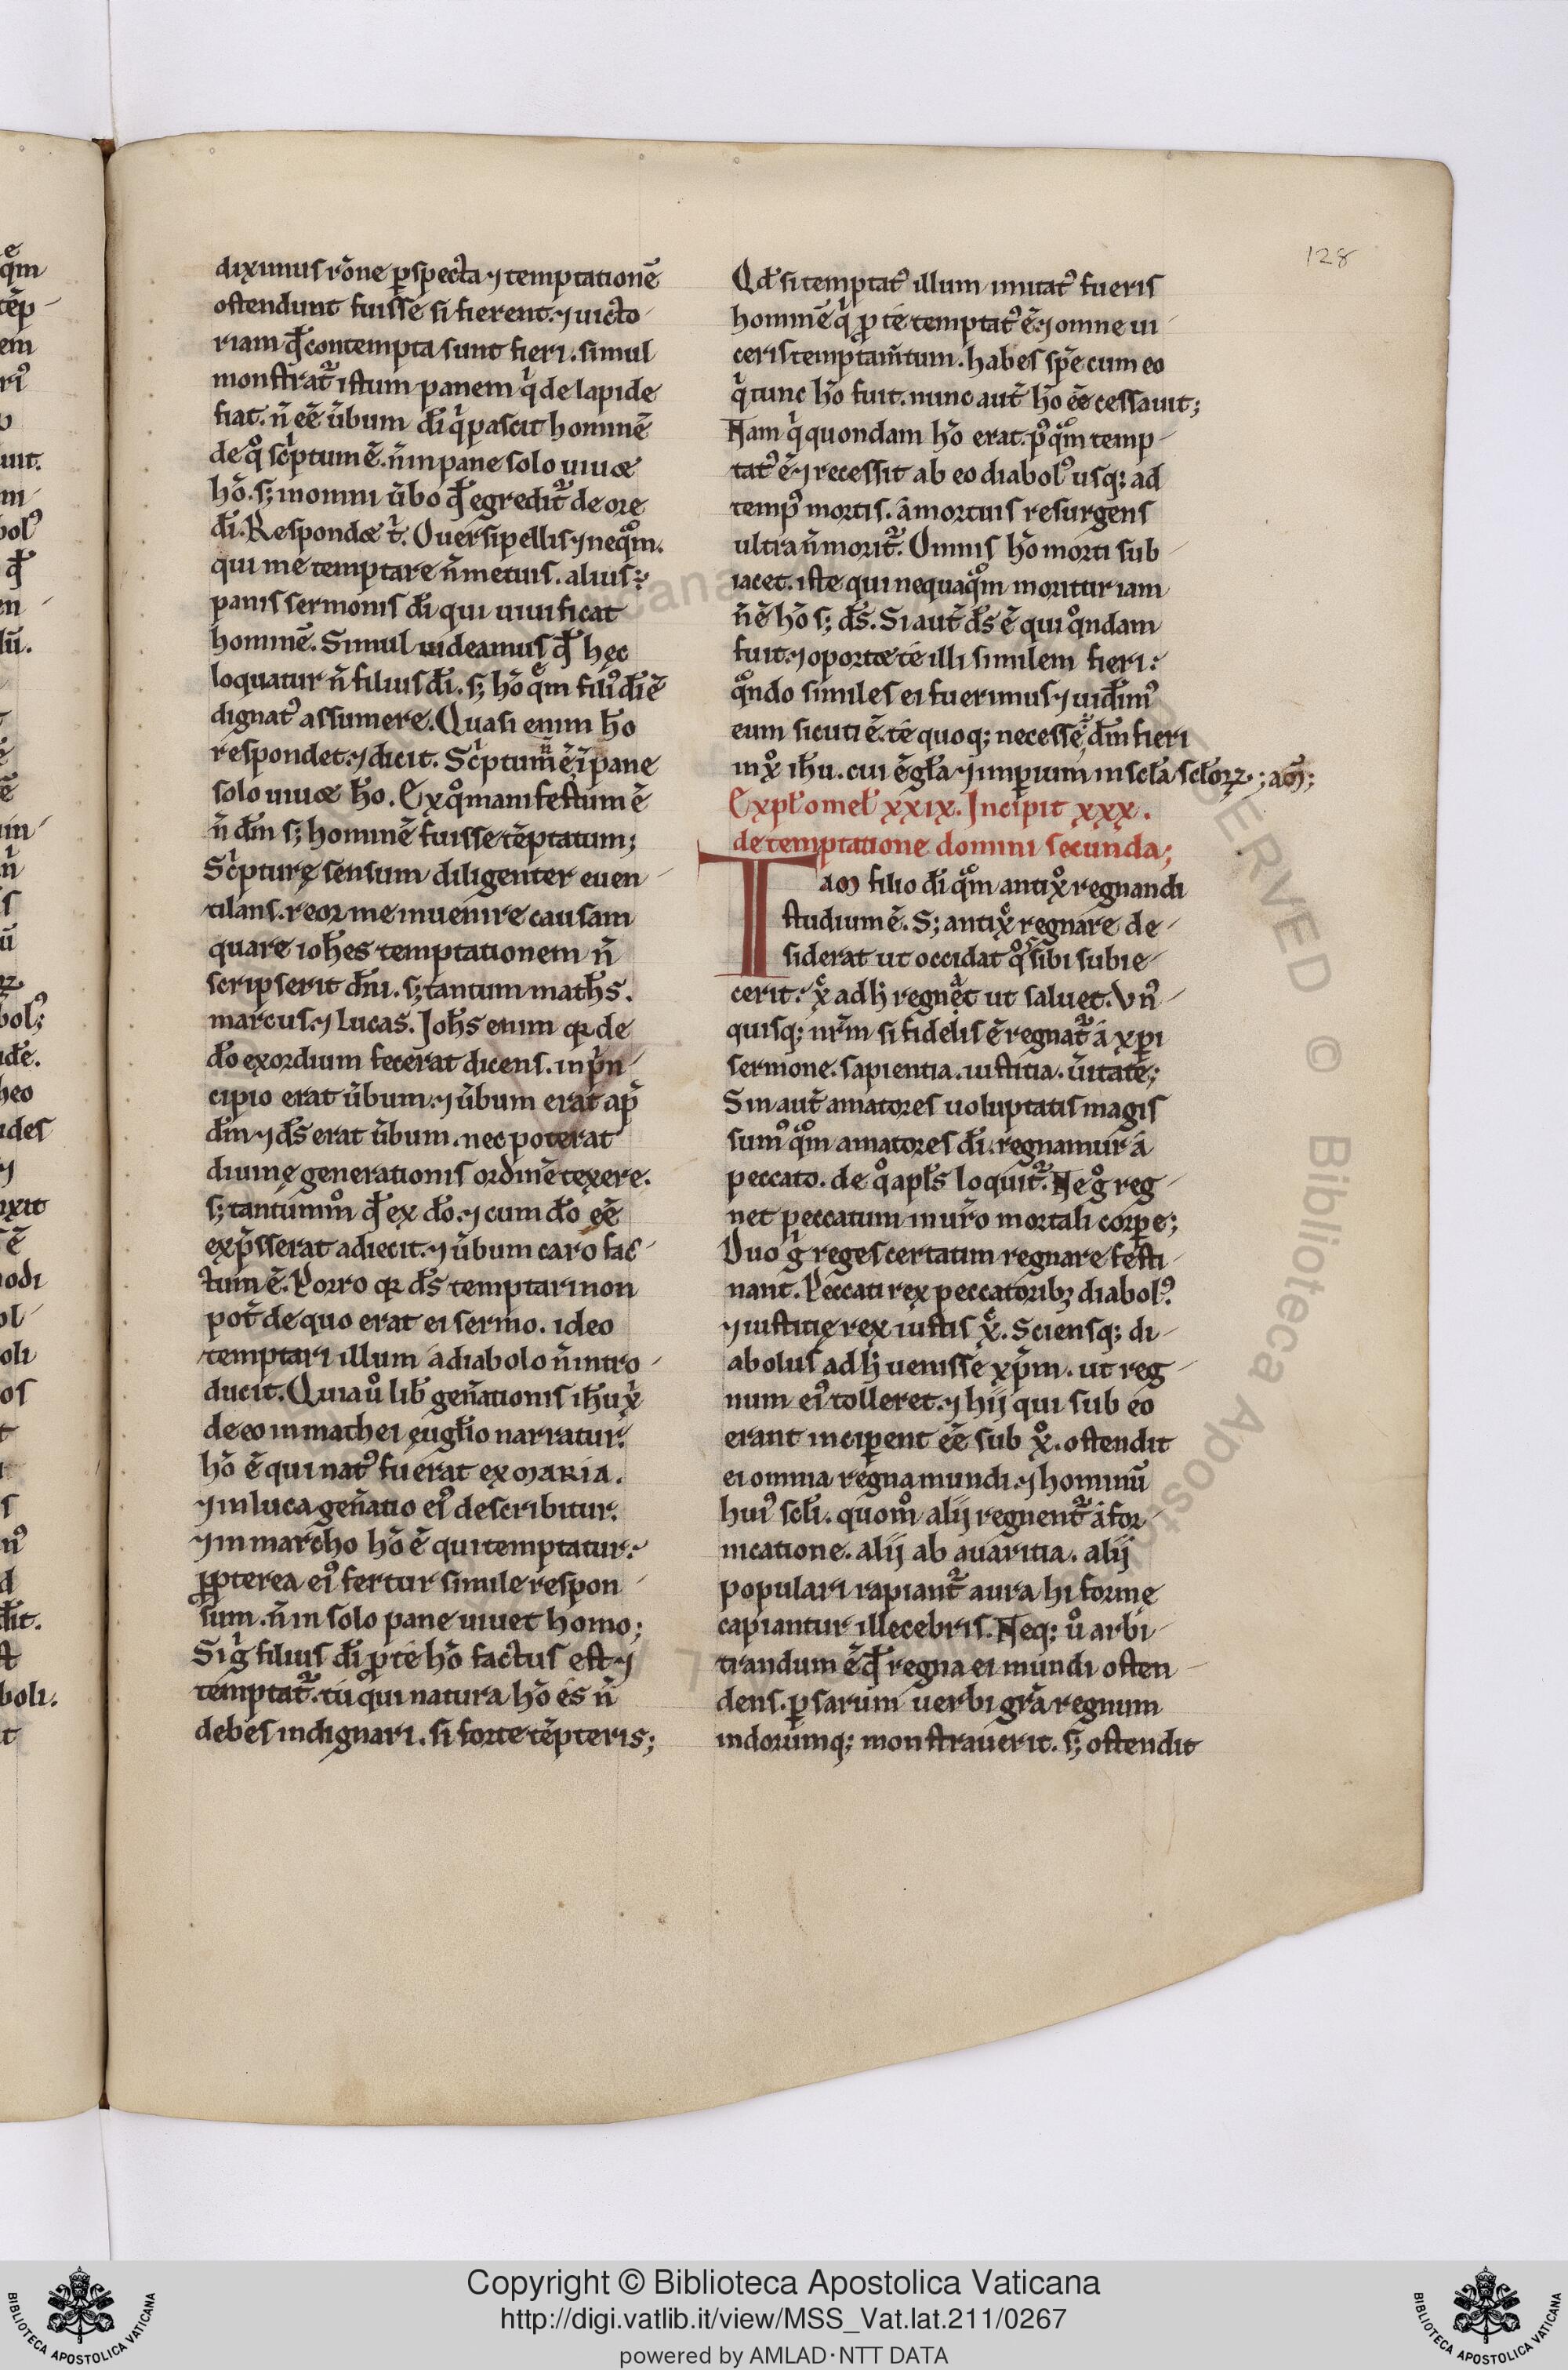 128
diximus rōne ꝑspecta ⁊ temptationē
ostendunt fuisse si fierent. ⁊ uicto-
riam qđ contempta sunt fieri. simul
monstrat᷑ istum panem q̇ de lapide
fiat. n̄ eē ūbum dī q̇ pascit hominē
de qͦ scͥptum ē. n̄ in pane solo uiuæ
hō. s; in omni ūbo qđ egredit᷑ de ore
dī. Respondæ ḡ. O uersipellis ⁊ neqͣm.
qui me temptare n̄ metuis. alius ē
panis sermonis dī qui uiuificat
hominē. Simul uideamus qđ hęc
loquatur n̄ filius dī. s; hō quēm filiꝰ dī ē
dignatꝰ assumere. Quasi enim ho
respondet. ⁊ dicit. Scͥptum ē n̄ ī pane
solo uiuæ ho. Ex qͦ manifestum ē
n̄ dm̄ s; hominē fuisse tēptatum;
Scͥpturę sensum diligenter euen-
tilans. reor me inuenire causam
quare iohes temptationem n̄
scripserit dn̄i. s; tantum maths.
marcus. ⁊ Lucas. Johs enim qꝛ de
do exordium fecerat dicens. in pͥn-
cipio erat ūbum. ⁊ ūbum erat ap̄
dm̄ ⁊ ds erat ūbum. nec poterat
diuinę generationis ordinē texere.
s; tantummͦ qđ ex do. ⁊ cum do eē
exp̄sserat adiecit. ⁊ ūbum caro fac-
tum ē. Porro qꝛ ds temptari non
pot̄ de quo erat ei sermo. ideo
temptari illum a diabolo n̄ intro-
ducit. Quia uͦ lib gen̄ationis ihu xͥ
de eo in mathei euglio narratur.
hō ē qui natꝰ fuerat ex maria.
⁊ in luca gen̄atio eiꝰ describitur.
⁊ in marcho hō ē qui temptatur.
ꝓpterea eiꝰ fertur simile respon-
sum. n̄ in solo pane uiuet homo;
Si gͥ filius dī ꝓ te hō factus est ⁊
temptat᷑. tu qui natura hō es n̄
debes indignari. si forte tēpteris;
Qđ si temptatꝰ illum imitatꝰ fueris
hominē q̇ ꝓ te temptatꝰ ē. ⁊ omne ui-
ceris temptam̄tum. habes spē cum eo
q̇ tunc hō fuit. nunc aut̄ hō eē cessauit;
Nam q̇ quondam hō erat. pꝰqͣm temp-
tatꝰ ē ⁊ recessit ab eo diabolꝰ usq; ad
tempꝰ mortis. a mortuis resurgens
ultra n̄ morit᷑. Omnis hō morti sub-
iacet. iste qui nequaqͣm moritur iam
n̄ ē hō s; ds. Si aut̄ ds ē qui qͦndam
fuit. ⁊ oportæ te illi similem fieri.
qͣndo similes ei fuerimus ⁊ uidim̄ꝰ
eum sicuti ē. te quoq; necesse ē dm̄ fieri
in xͦ ihu. cui ē gla ⁊ imꝑium in scla sclorꝝ; am̄;
Expl omel xxix. Incipit xxx.
de temptatione domini secunda;
Tam filio dī qͣm antixͦ regnandi
studium ē. S; antixͨ regnare de-
siderat ut occidat qͦs sibi subie-
cerit. xͨ ad h̄ regnæt ut saluet. Vnꝰ-
quisq; nr̄m si fidelis ē regnat᷑ a xpi
sermone. sapientia. iustitia. ūitate;
Sin aut̄ amatores uoluptatis magis
sumꝰ qͣm amatores dī. regnamur a
peccato. de qͦ apls loquit᷑. Ne gͦ reg-
net peccatum in ur̄o mortali corꝑe;
Duo gͥ reges certatim regnare festi-
nant. Peccati rex peccatoribꝫ diabolꝰ.
⁊ iustitię rex iustis xͨ. Sciensq; di-
abolus ad h̄ uenisse xpm̄. ut reg-
num eiꝰ tolleret. ⁊ hij qui sub eo
erant inciꝑent eē sub xͦ. ostendit
ei omnia regna mundi. ⁊ hominū
huiꝰ scli. quomͦ alij regnent᷑ a for-
nicatione. alij ab auaritia. alij
populari rapiant᷑ aura hi formę
capiantur illecebris. Neq; uͦ arbi-
trandum ē qđ regna ei mundi osten-
dens. ꝑsarum uerbi gra regnum
indorumq; monstrauerit. s; ostendit
Copyright © Biblioteca Apostolica Vaticana
http://digi.vatlib.it/view/MSS_Vat.lat.211/0267
powered by AMLAD·NTT DATA
BIBLIOTECA APOSTOLICA VATICANA
BIBLIOTECA APOSTOLICA VATICANA